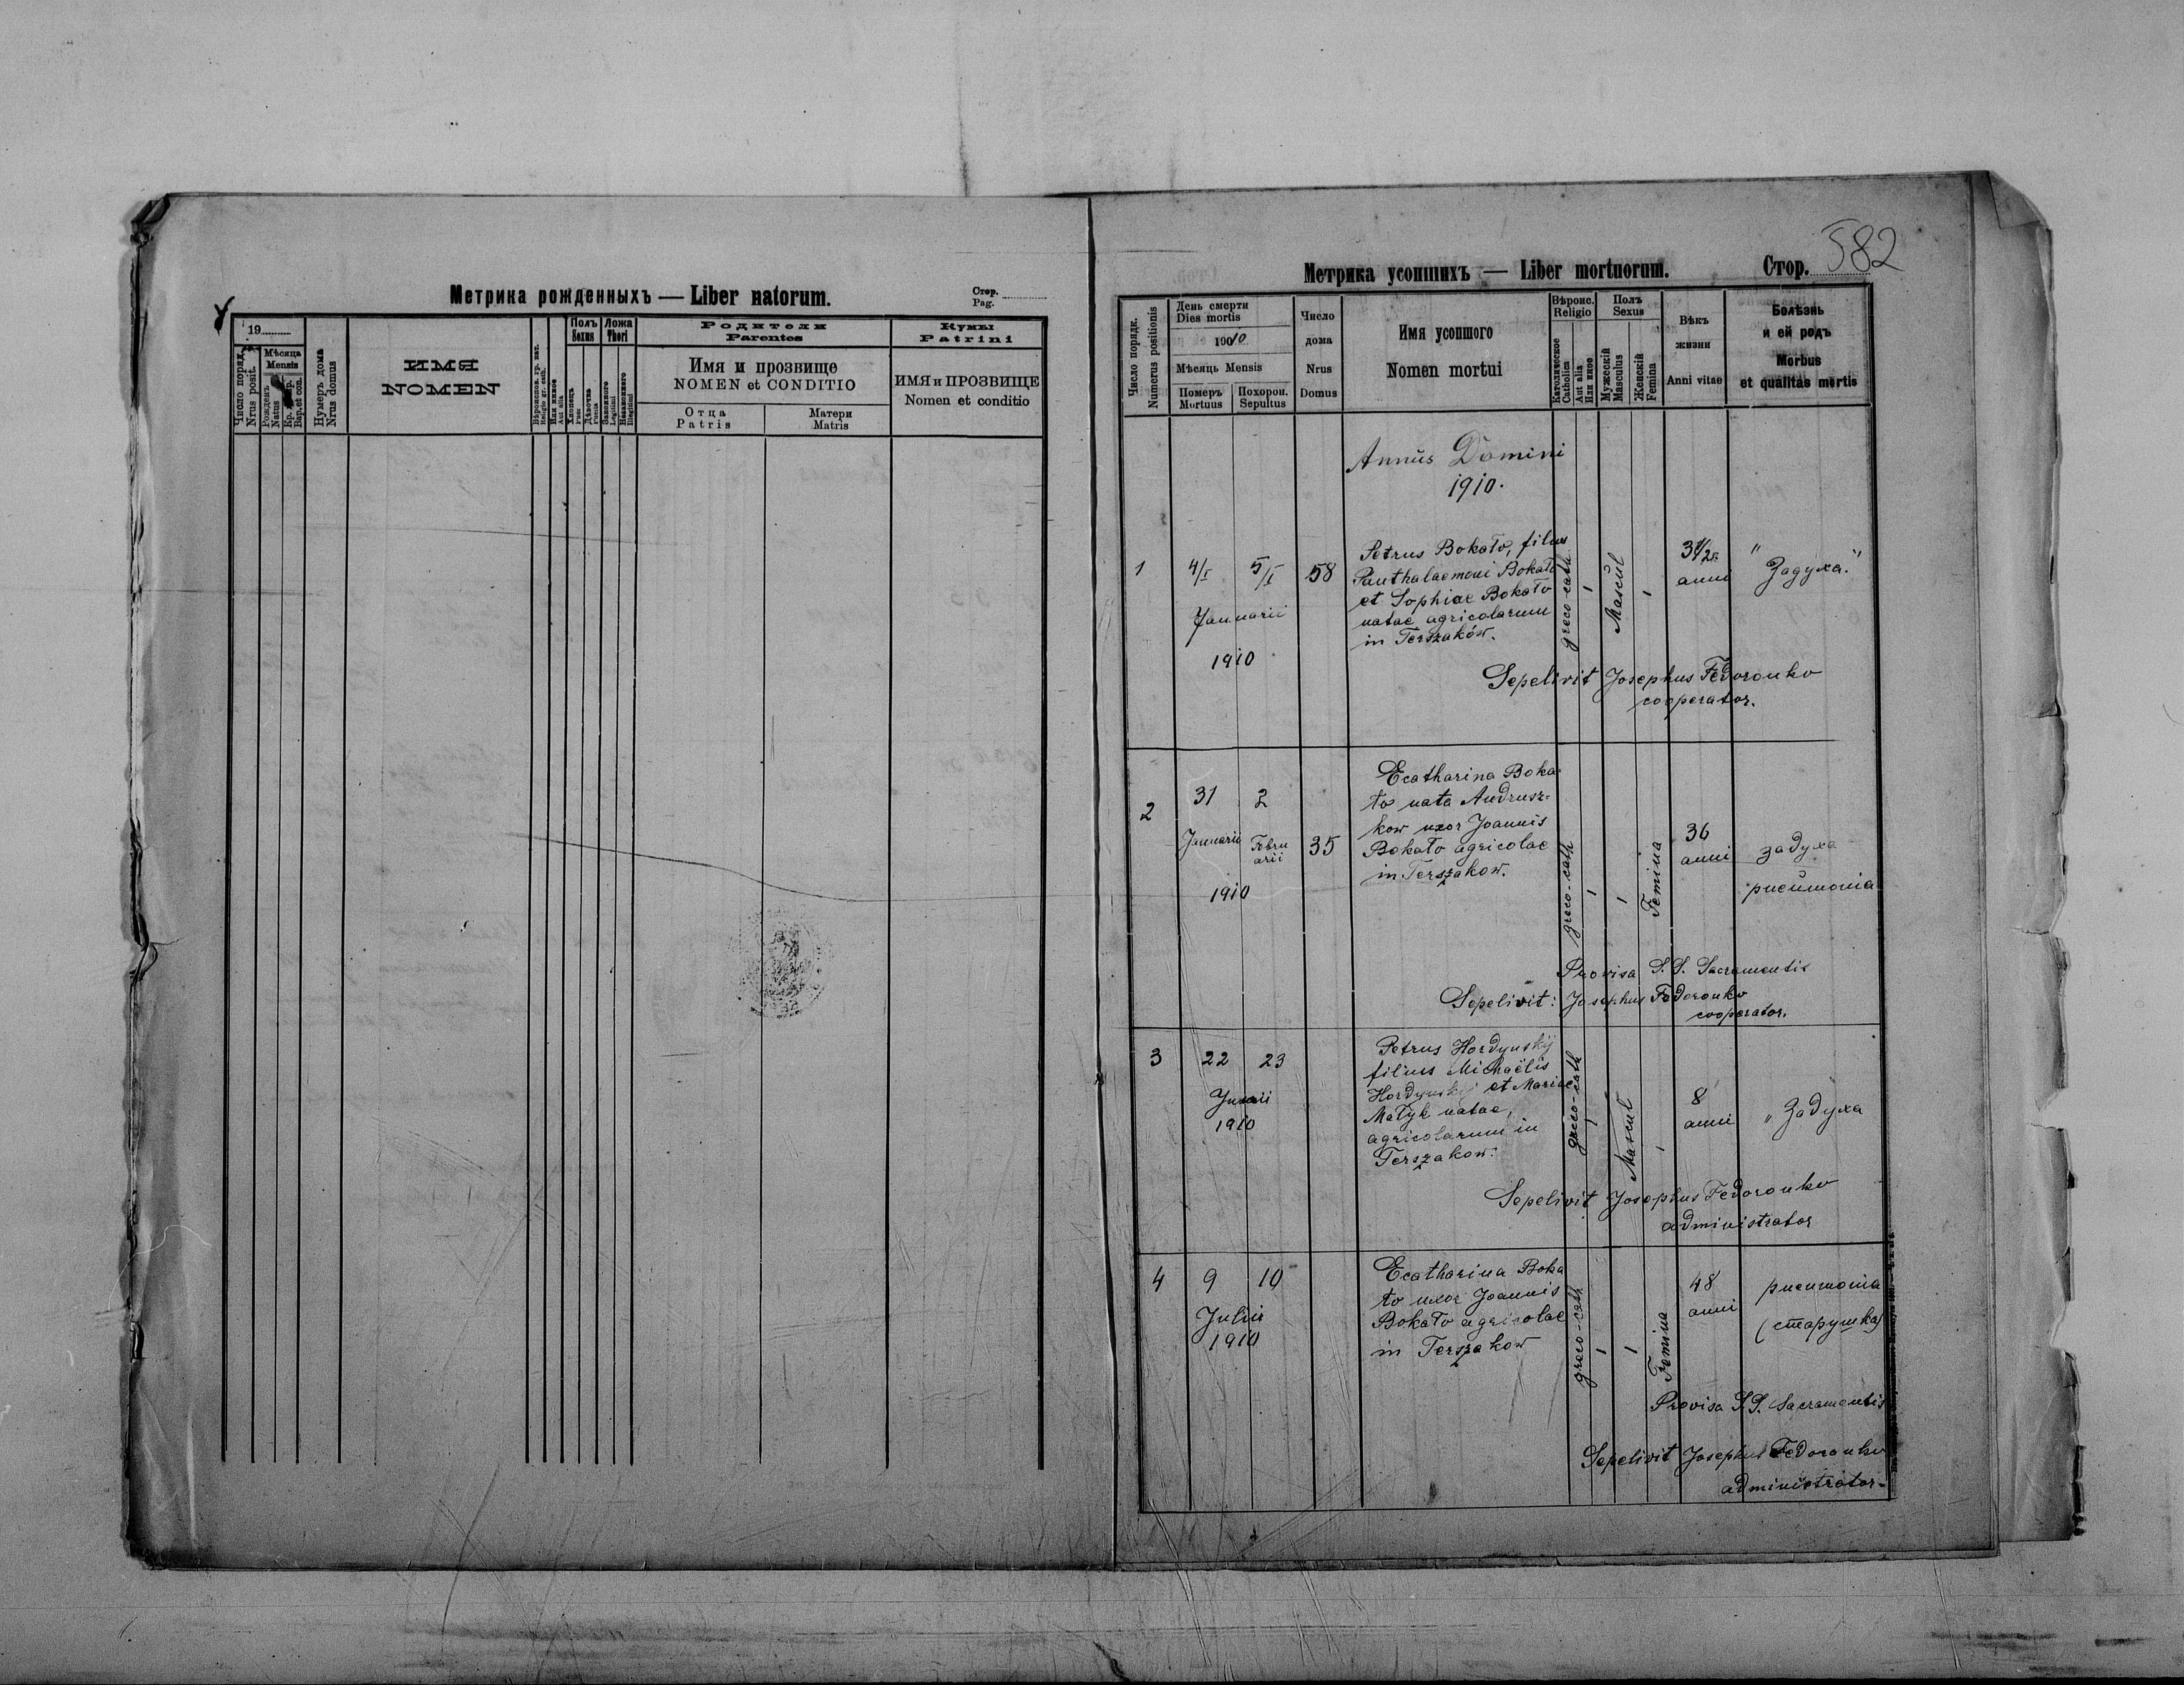 Метрика рожденныхъ — Liber natorum.
Стор.
Pag.
19
Число поряд.
Nrus posit.
Мѣсяца
Mensis
Рожденъ
Natus
Bap. et con.
Нумеръ дома
Nrus domus
ИМЯ
NOMEN
Или инное
Aut alia
Полъ
Sexus
Хлопець
Puer
Дѣвочка
Puella
Ложа
Thori
Законного
Legitimi
Незаконного
Illegitimi
Родители
Parentes
Имя и прозвище
NOMEN et CONDITIO
Отца
Patris
Матери
Matris
Кумы
Patrini
ИМЯ и ПРОЗВИЩЕ
Nomen et conditio
582
Метрика усопшихъ — Liber mortuorum.
Стор.
Число порядк.
Numerus positionis
День смерти
Dies mortis
1910
Мѣсяць Mensis
Померъ
Mortuus
Похорон.
Sepultus
Число
дома
Nrus
Domus
Имя усопшого
Nomen mortui
Вѣроис.
Religio
Католическое
Catholica
Aut alia
Или иное
Полъ
Sexus
Мужескій
Masculus
Женскій
Femina
Вѣкъ
жизни
Anni vitae
Болѣзнь
и ей родъ
Morbus
et qualitas mortis
Annŭs Domini
1910.
1
4/I
5/I
Januarii
1910
58
Petrus Bokało, filius
Panthalaemoni Bokało
et Sophiae Bokało
natae agricolarum
in Terszaków.
greco-cath
Mascŭl
3 1/2
anni
"Задуха."
Sepelivit Josephus Fedoronko
cooperator.
2
31
2
Januarii
Febru
arii
1910
35
Ecatharina Boka-
ło nata Andrusz-
kow uxor Joannis
Bokało agricolae
in Terszakow.
greco-cath
Femina
36
anni
задуха
pneŭmonia
Provisa S.S. Sacramentis
Sepelivit: Josephus Fedoronko
cooperator.
3
22
23
1910
Petrus Hordynskij
filius Michaëlis
Hordynskij et Mariae
Małyk natae,
agricolarum in
Terszakow.
greco-cath
Mascul
8
anni
"Задуха
Sepelivit Josephus Fedoronko
administrator
4
9
10
Julii
1910
Ecatharina Boka
ło uxor Joannis
Bokało agricolae
in Terszakow
greco-cath
Femina
48
anni
pneumonia
(старушка)
Provisa S.S. Sacramentis
Sepelivit Josephus Fedoronko
administrator-